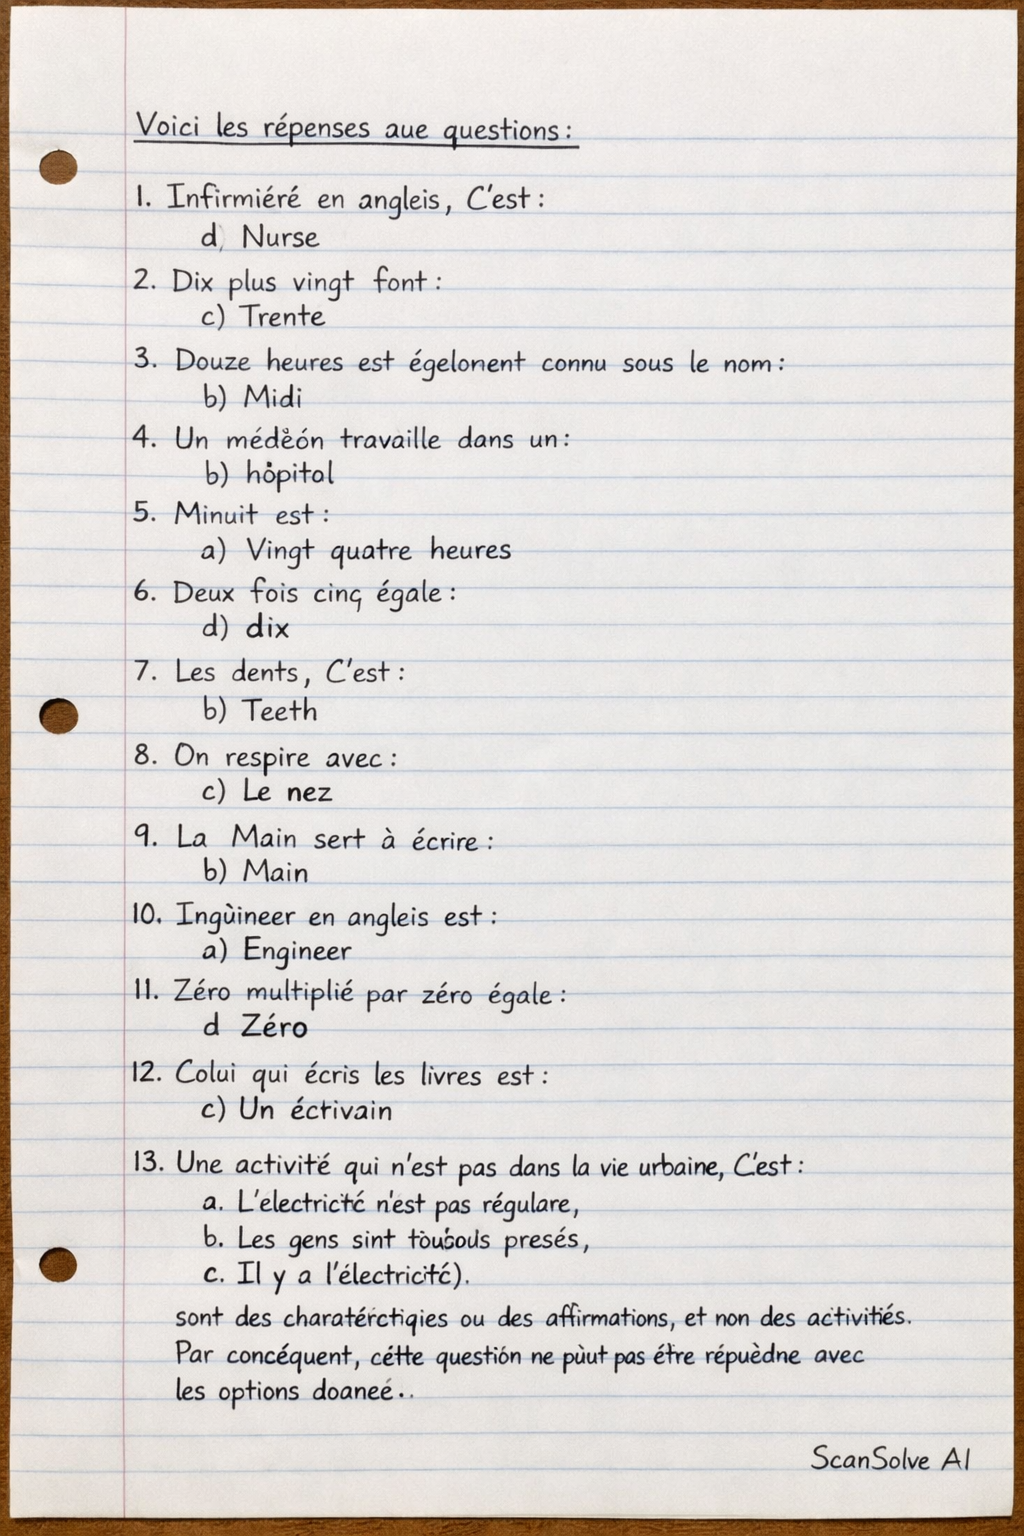 Voici les répenses aue questions:
1. Infirmiéré en angleis, C'est:
d) Nurse
2. Dix plus vingt font:
c) Trente
3. Douze heures est égelonent connu sous le nom:
b) Midi
4. Un médèón travaille dans un:
b) hôpitol
5. Minuit est:
a) Vingt quatre heures
6. Deux fois cinq égale:
d) dix
7. Les dents, C'est:
b) Teeth
8. On respire avec:
c) Le nez
9. La Main sert à écrire:
b) Main
10. Ingùineer en angleis est:
a) Engineer
11. Zéro multiplié par zéro égale:
d Zéro
12. Colui qui écris les livres est:
c) Un éctivain
13. Une activité qui n'est pas dans la vie urbaine, C'est:
a. L'electricté n'est pas régulare,
b. Les gens sint presés,
c. Il y a l'électricité).
sont des charatérctiqies ou des affirmations, et non des activitiés.
Par concéquent, cétte questión ne pùut pas étre répuèdne avec
les options doaneé..
ScanSolve AI